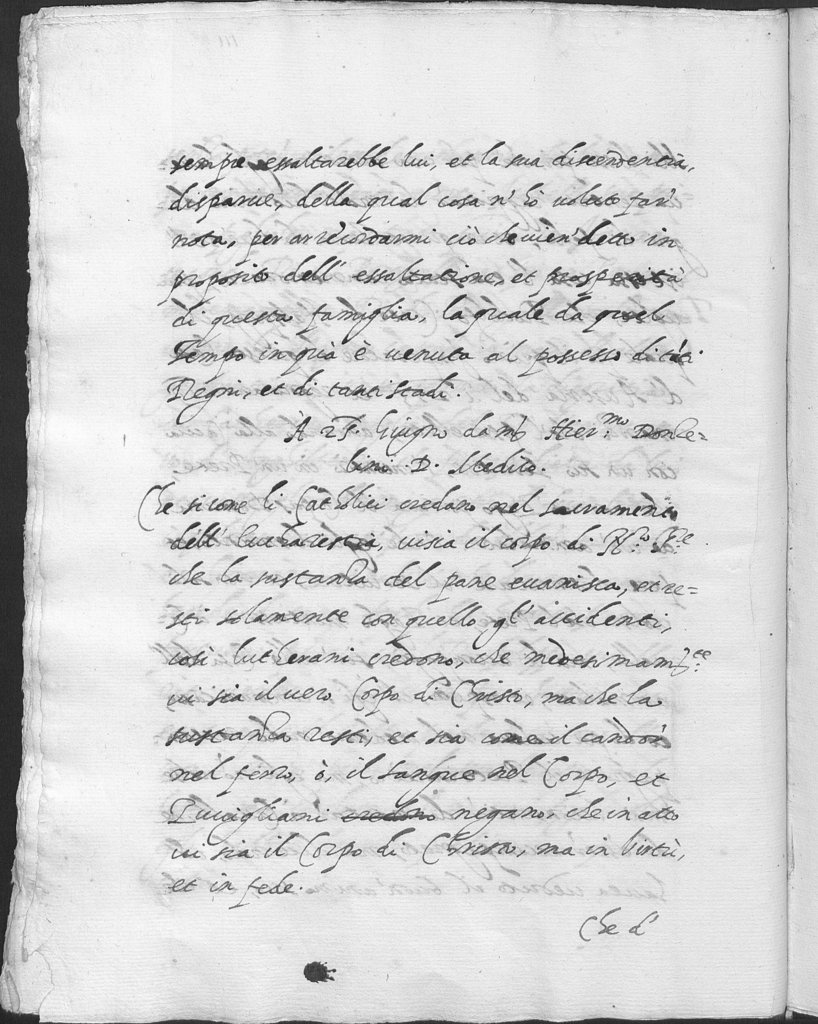 sempre essaltarebbe lui, et la sua discendentia,
disparue, della qual cosa n'hò uoluto far'
nota, per arrecordarmi ciò che uien' detto in
proposito dell' essaltatione, et prosperità
di questa famiglia, la quale da quel
Tempo in quà è uenuta al possesso di tãti
Regni, et di tanti stadi.
À 25. Giugno da m.
D. Medico.
Che sicome li Catholici credano nel sacramento
dell' Eucharestia, ui sia il corpo di N.ro S.re
che la sustanza del pane euanisca, et re=
sti solamente con quello gl' accidenti,
così lutherani credono, che medesimam.te
ui sia il uero Corpo di Christo, ma che la
sustanza resti, et sia come il candor
nel ferro, ò, il sangue nel Corpo, et
Zuuigliani credono negano, che in atto
ui sia il Corpo di Christo, ma in uirtù,
et in fede.
Che d'